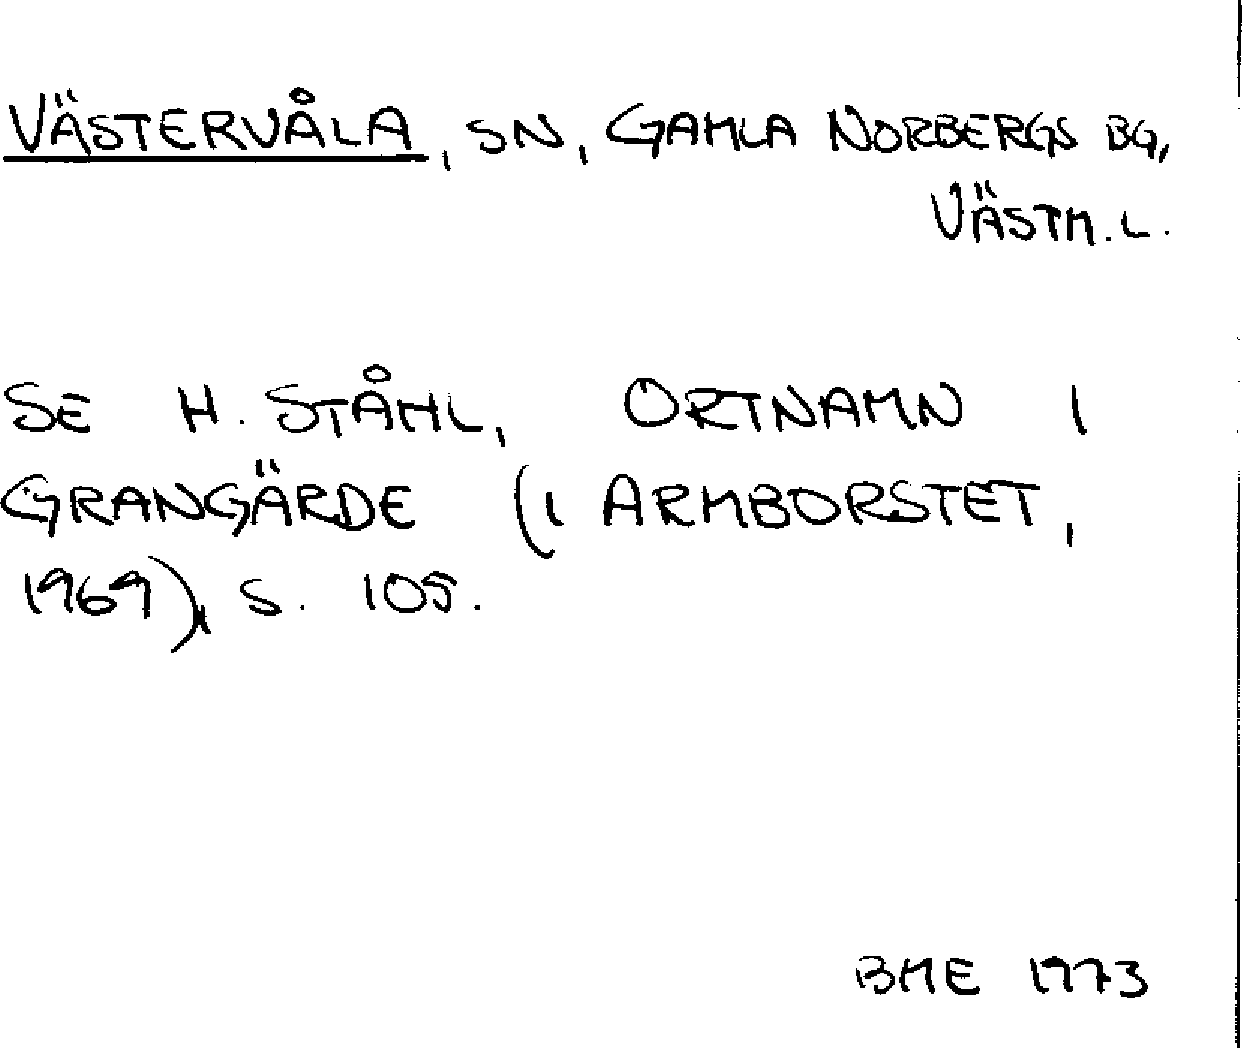 VÄSTERVÅLA, SN, GAMLA NORBERGS BG,
VÄSTM.L.
SE H. STÅHL, ORTNAMN I
GRANGÄRDE (I ARMBORSTET,
1969), S. 105.
BME 1973